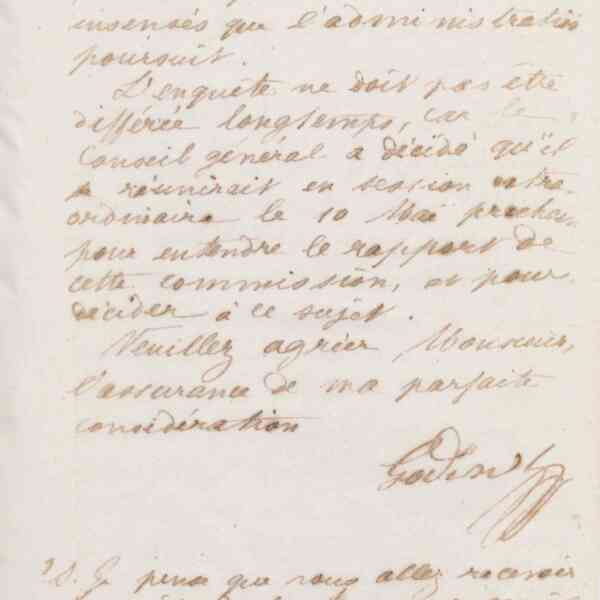 insensés que l'administration
poursuit.
L'enquête ne doit pas être
différée longtemps, car le
Conseil général a décidé qu'il
se réunirait en session extra-
ordinaire le 10 Mai prochain
pour entendre le rapport de
cette commission, et pour
décider à ce sujet.
Veuillez agréer, Monsieur,
l'assurance de ma parfaite
considération
Godin
P.S. Je pense que vous allez recevoir